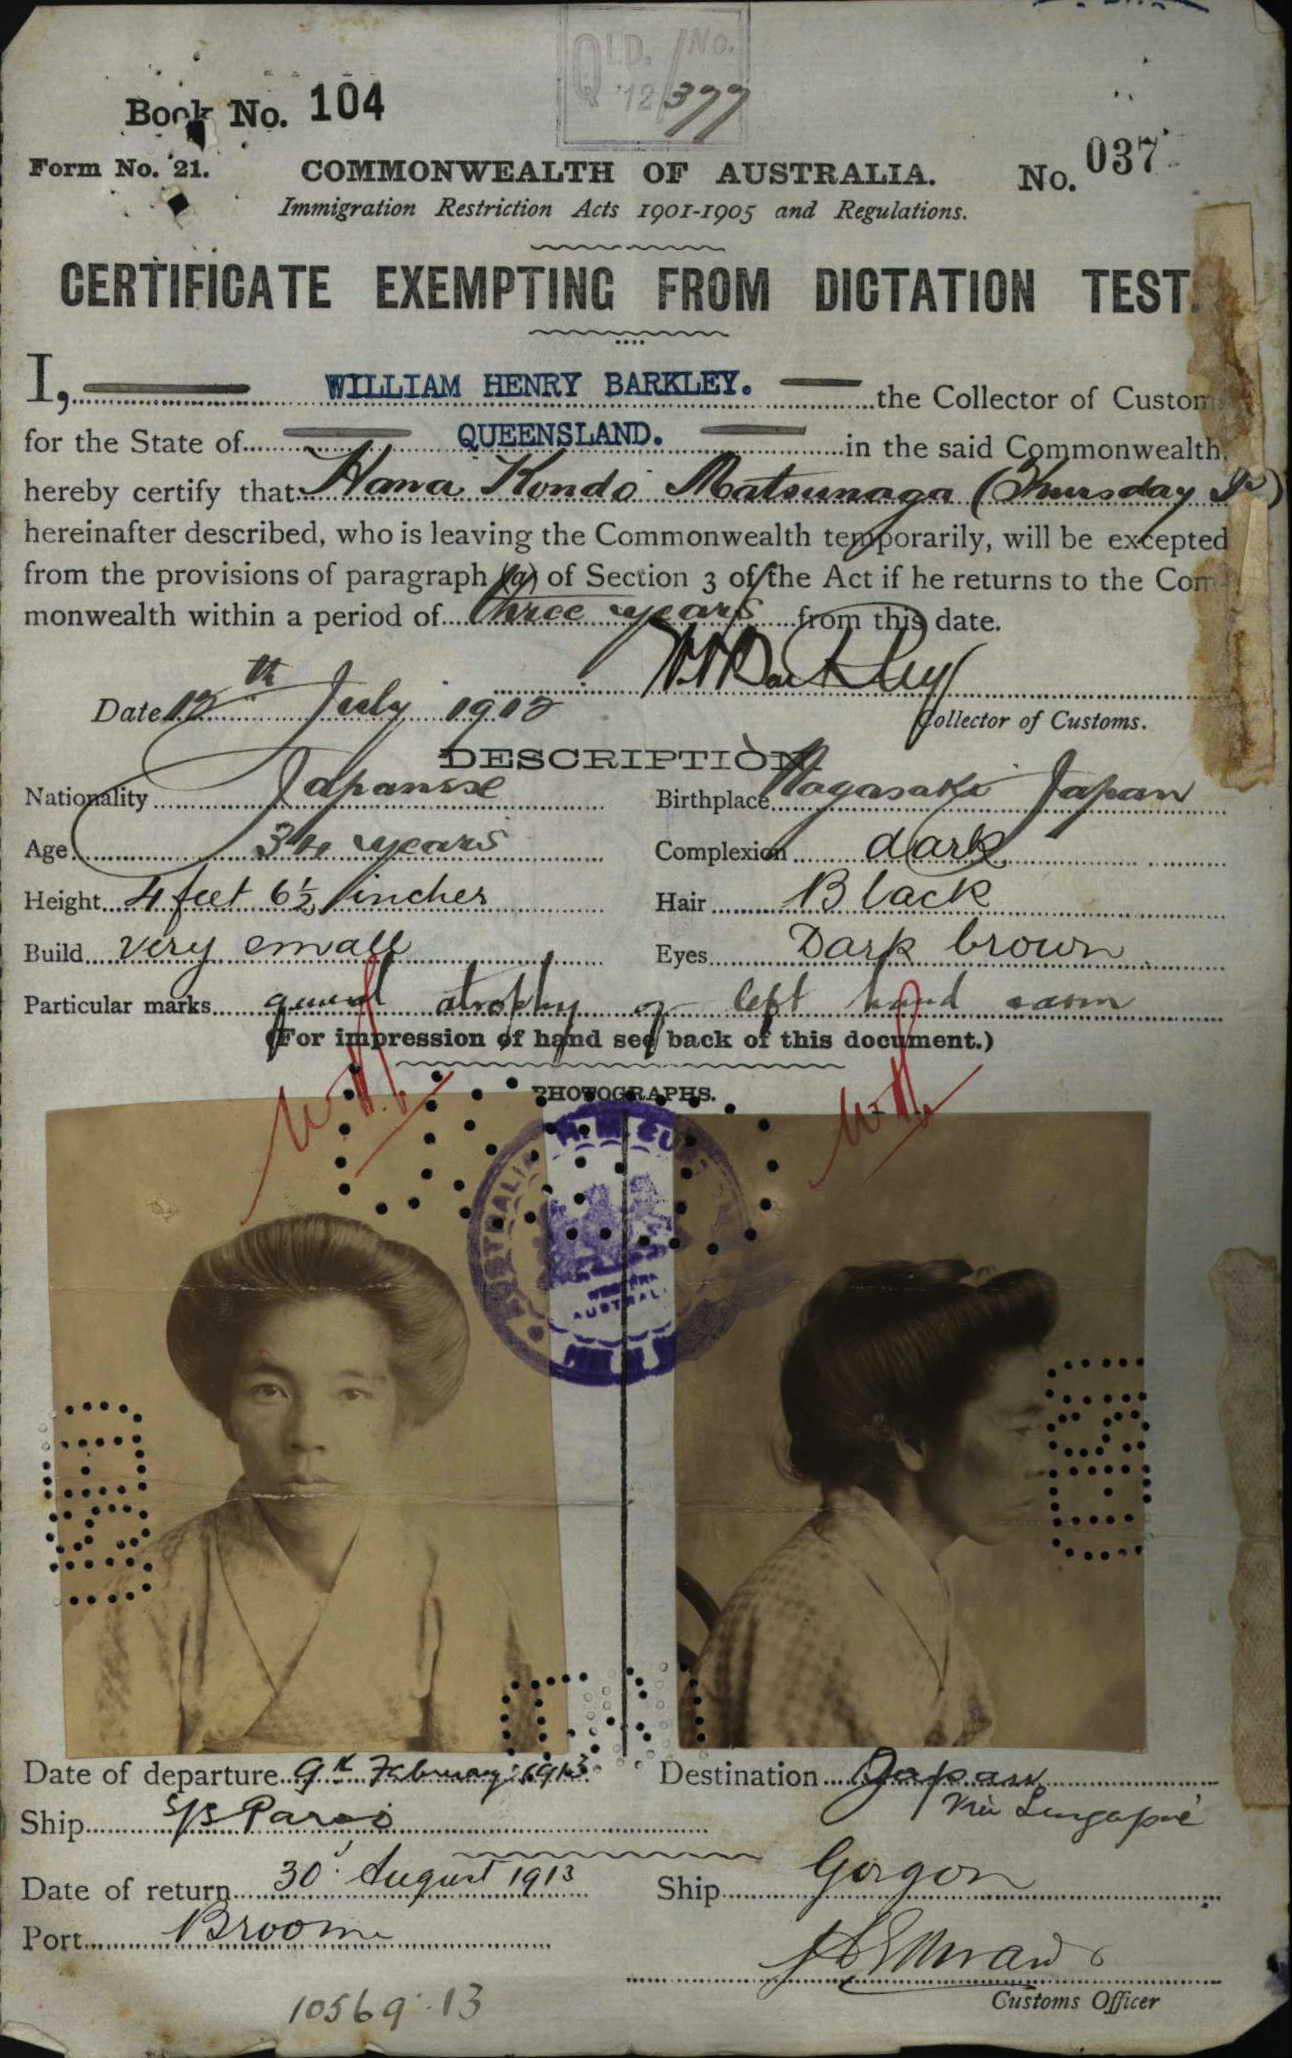 QLD. No.
'12/377
Book No. 104
Form No. 21.
COMMONWEALTH OF AUSTRALIA.
No. 037
Immigration Restriction Acts 1901-1905 and Regulations.
CERTIFICATE EXEMPTING FROM DICTATION TEST.
I, WILLIAM HENRY BARKLEY. the Collector of Custom
for the State of QUEENSLAND. in the said Commonwealth,
hereby certify that Hana Kondo Matsunaga (Thursday Is)
hereinafter described, who is leaving the Commonwealth temporarily, will be excepted
from the provisions of paragraph (a) of Section 3 of the Act if he returns to the Com-
monwealth within a period of three years from this date.
WHBarkley
Date 12th July 1912
Collector of Customs.
DESCRIPTION.
Nationality Japanese Birthplace Nagasaki Japan
Age 34 years Complexion dark
Height 4 feet 6½ inches Hair Black
Build very small Eyes Dark brown
Particular marks general atrophy of left hand & arm
(For impression of hand see back of this document.)
PHOTOGRAPHS.
H.M. CUSTOMS
AUSTRALIA
WESTERN
AUSTRALIA
Date of departure 9th February 1913 Destination Japan
via Singapore
Ship S/S Paroo
Date of return 30 August 1913 Ship Gorgon
Port Broome
Customs Officer
10569.13